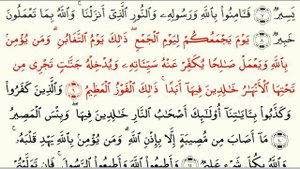 يَسِيرٌ ٧ فَـَٔامِنُوا۟ بِٱللَّهِ وَرَسُولِهِۦ وَٱلنُّورِ ٱلَّذِىٓ أَنزَلْنَا ۚ وَٱللَّهُ بِمَا تَعْمَلُونَ
خَبِيرٌ ٨ يَوْمَ يَجْمَعُكُمْ لِيَوْمِ ٱلْجَمْعِ ۖ ذَٰلِكَ يَوْمُ ٱلتَّغَابُنِ ۗ وَمَن يُؤْمِنۢ
بِٱللَّهِ وَيَعْمَلْ صَـٰلِحًا يُكَفِّرْ عَنْهُ سَيِّـَٔاتِهِۦ وَيُدْخِلْهُ جَنَّـٰتٍ تَجْرِى مِن
تَحْتِهَا ٱلْأَنْهَـٰرُ خَـٰلِدِينَ فِيهَآ أَبَدًا ۚ ذَٰلِكَ ٱلْفَوْزُ ٱلْعَظِيمُ ٩ وَٱلَّذِينَ كَفَرُوا۟
وَكَذَّبُوا۟ بِـَٔايَـٰتِنَآ أُو۟لَـٰٓئِكَ أَصْحَـٰبُ ٱلنَّارِ خَـٰلِدِينَ فِيهَا ۖ وَبِئْسَ ٱلْمَصِيرُ ١٠
مَآ أَصَابَ مِن مُّصِيبَةٍ إِلَّا بِإِذْنِ ٱللَّهِ ۗ وَمَن يُؤْمِنۢ بِٱللَّهِ يَهْدِ قَلْبَهُۥ ۚ
وَٱللَّهُ بِكُلِّ شَىْءٍ عَلِيمٌ ١١ وَأَطِيعُوا۟ ٱللَّهَ وَأَطِيعُوا۟ ٱلرَّسُولَ ۚ فَإِن تَوَلَّيْتُمْ